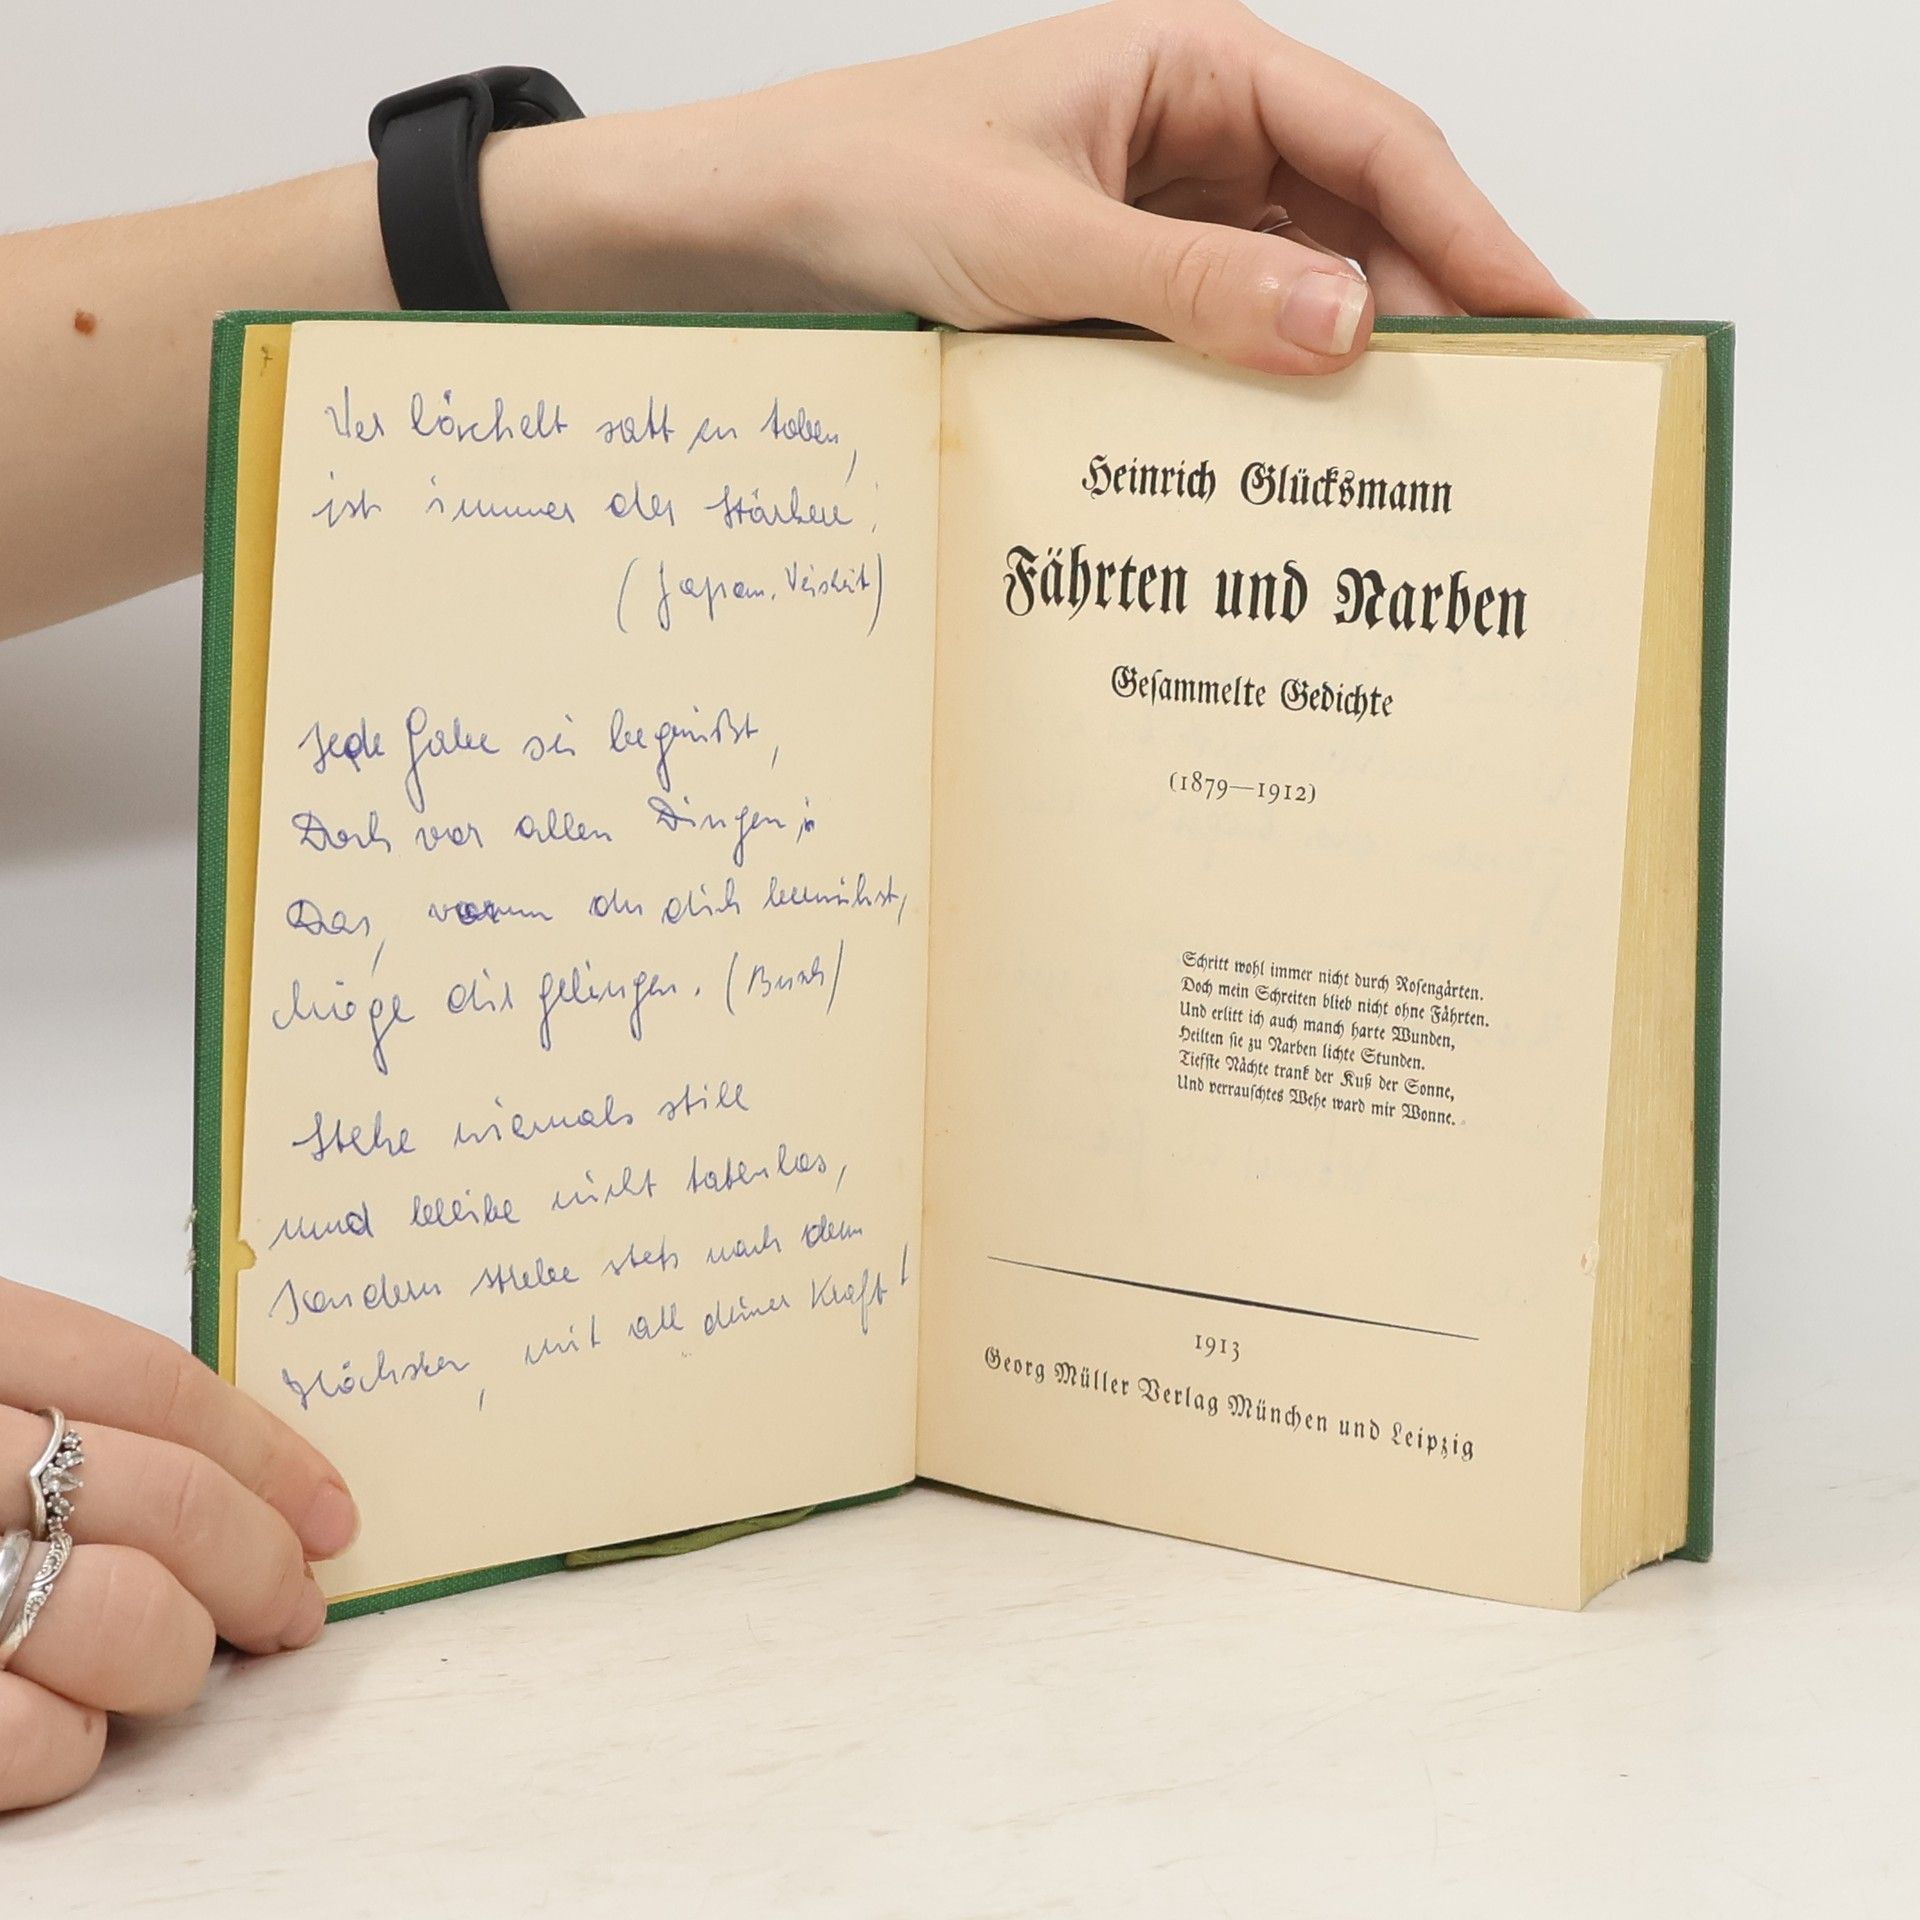 Wer lächelt statt zu toben,
ist immer der Stärkere!
(Japan. Weisheit)
Jede Gabe sei begrüßt,
Doch vor allen Dingen:
Das, worum du dich bemühst,
Möge dir gelingen. (Busch)
Stehe niemals still
und bleibe nicht tatenlos,
sondern strebe stets nach dem
Höchsten, mit all deiner Kraft!
Heinrich Glücksmann
Fährten und Narben
Gesammelte Gedichte
(1879—1912)
Schritt wohl immer nicht durch Rosengärten.
Doch mein Schreiten blieb nicht ohne Fährten.
Und erlitt ich auch manch harte Wunden,
Heilten sie zu Narben lichte Stunden.
Tiefste Nächte trank der Kuß der Sonne,
Und verrauschtes Wehe ward mir Wonne.
1913
Georg Müller Verlag München und Leipzig